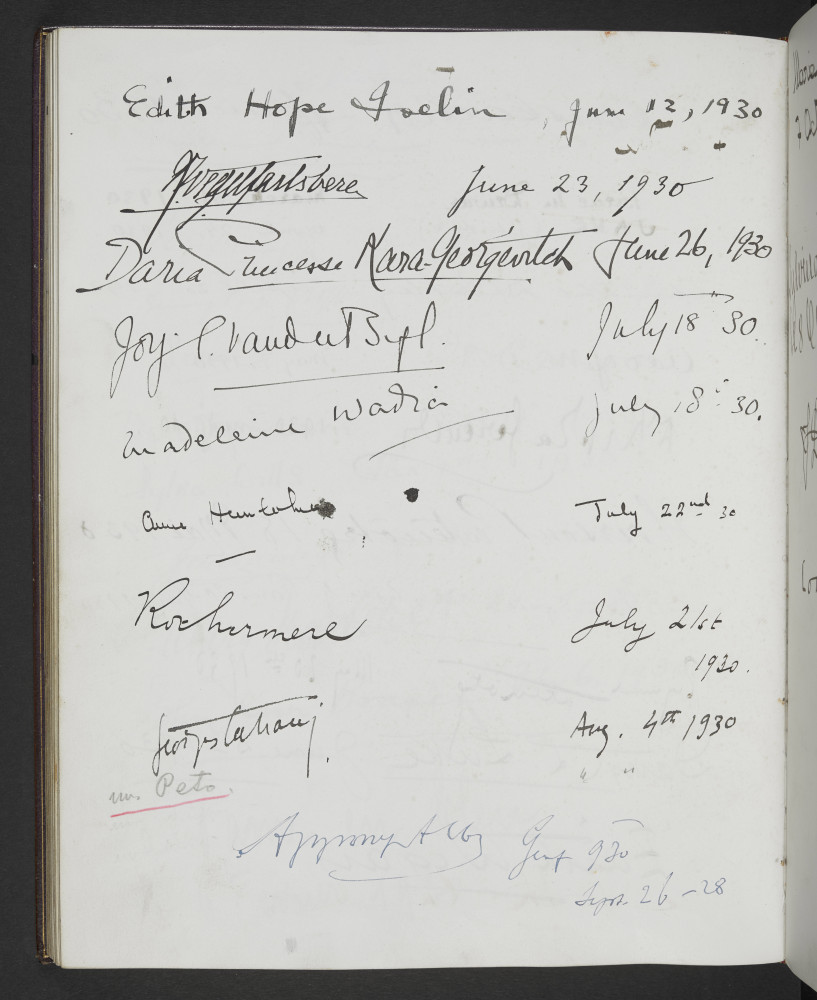 Edith Hope Iselin, June 12, 1930
June 23, 1930
Daria Princesse Kara-Georgevitch June 26, 1930
Joy L. Vanderbyl. July 18th 30.
Madeleine Wadia July 18th 30.
Anne July 22nd 30
Rothermere July 21st
1930.
Georges Aug. 4th 1930
" "
Mr. Peto.
Genf 930
Sept. 26-28